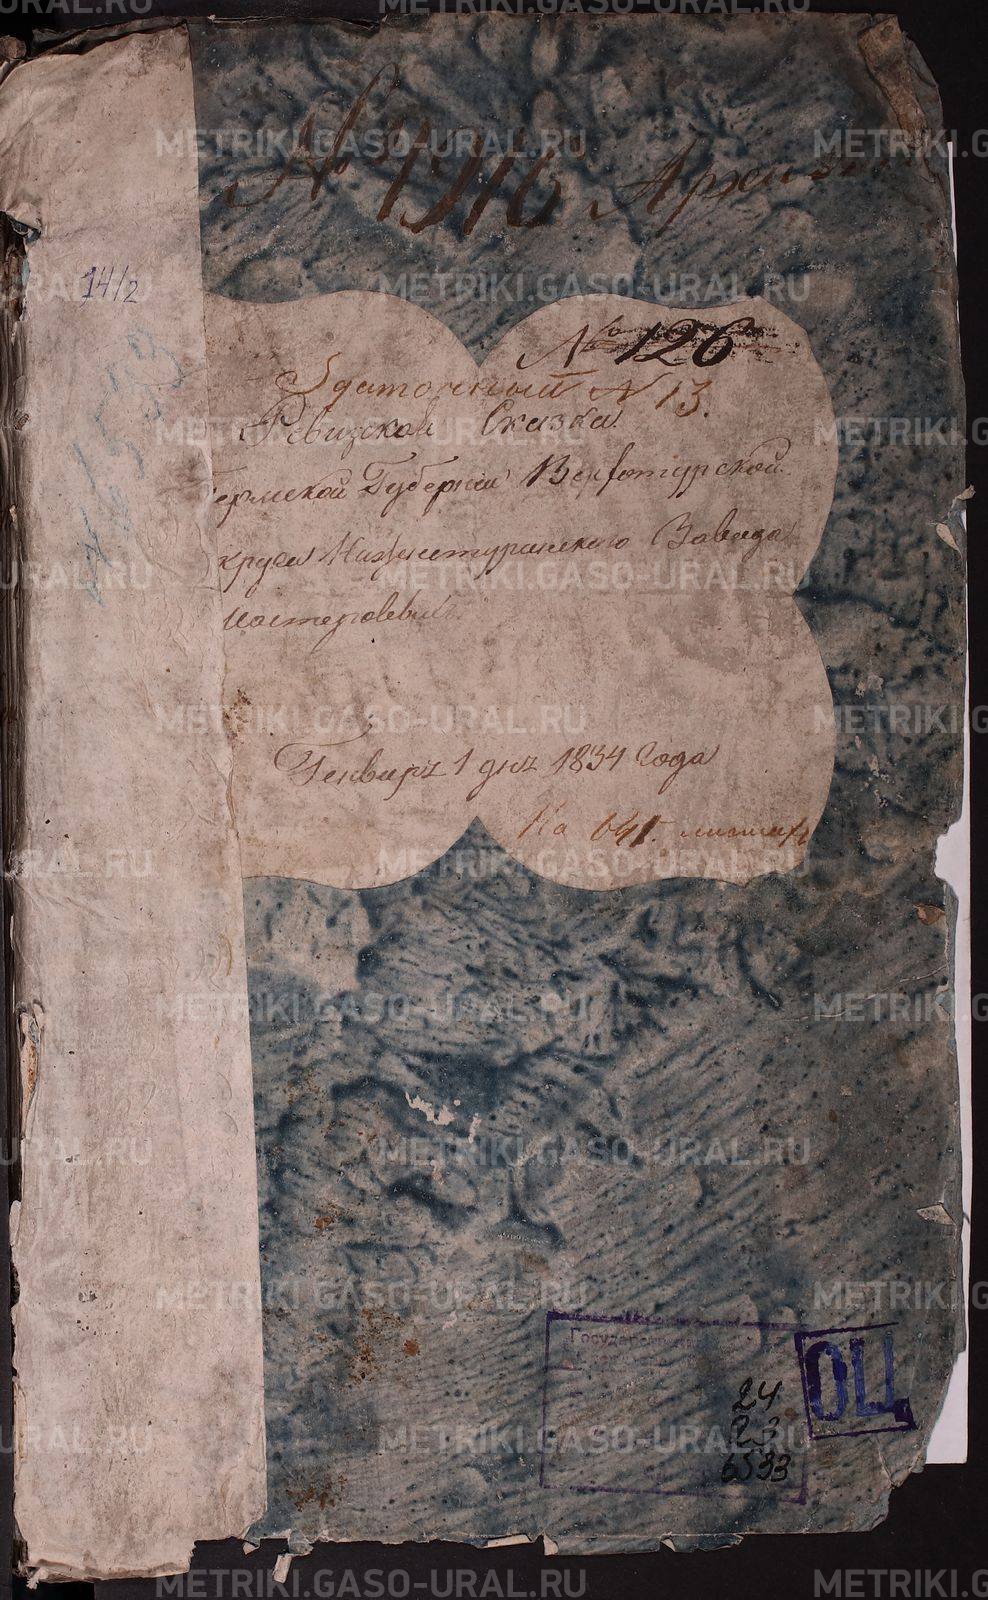 № 1916 Архи
14/2
№ 126
Здаточный № 13.
Ревизской Сказка
ермской Губернии Верхотурской
круга Нижнетуринского Завода
мастеровых
Генваря 1 дня 1834 года
На 641. листах
Государственный
ОЦ
24
23
6533
METRIKI.GASO-URAL.RU